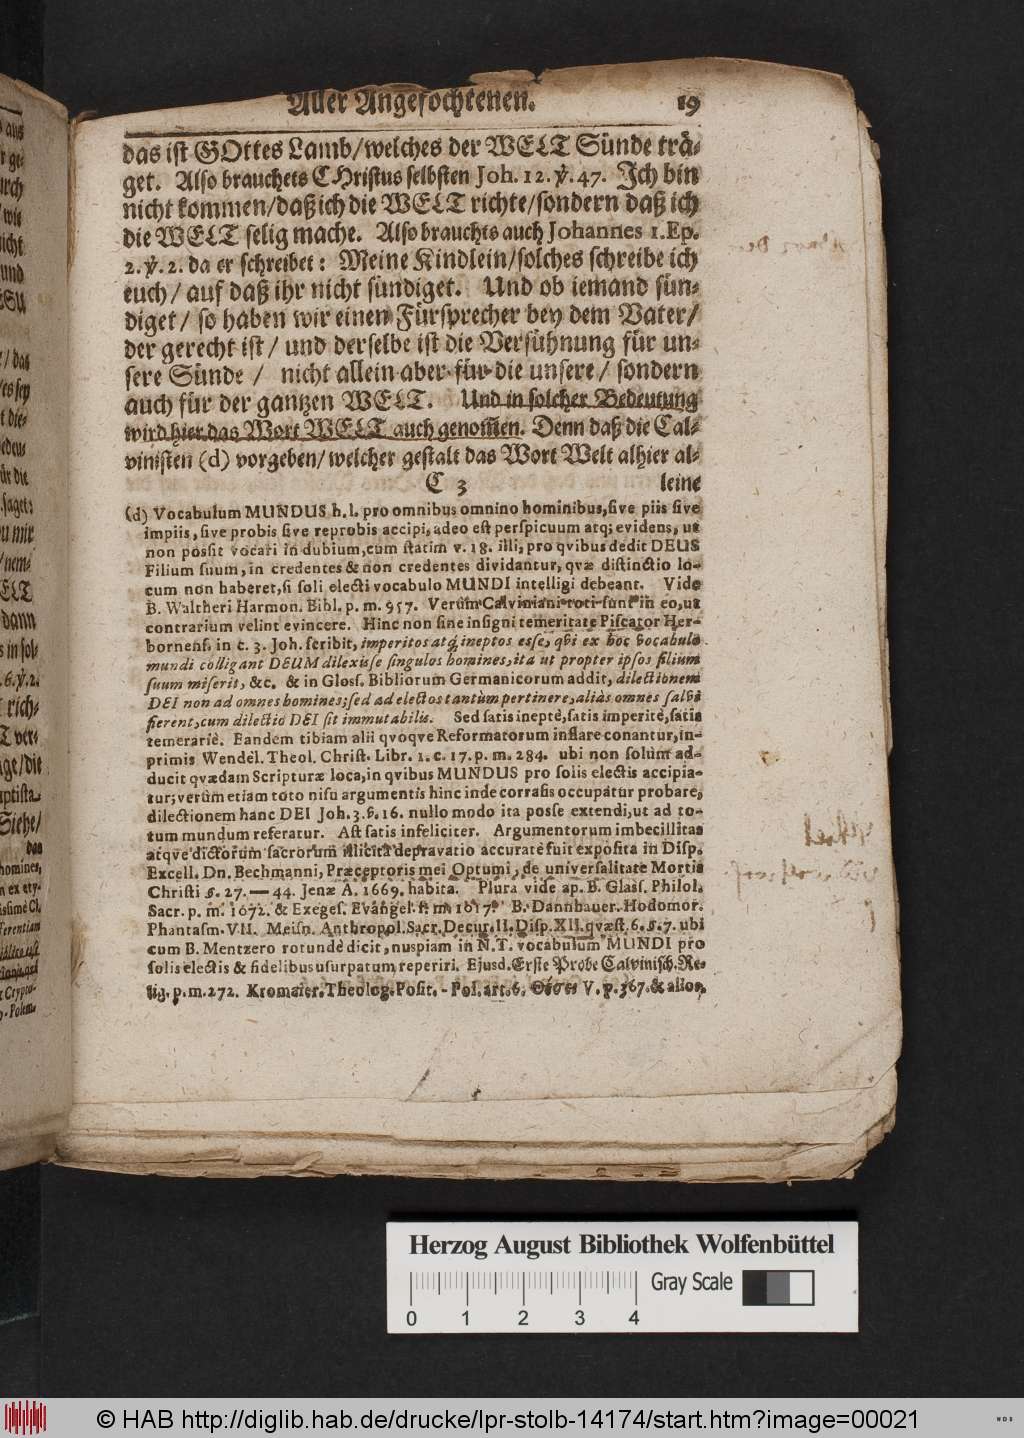 Aller Angefochtenen. 19
das ist GOttes Lamb/welches der WELT Sünde trä-
get. Also brauchets CHristus selbsten Joh. 12. ℣. 47. Ich bin
nicht kommen/daß ich die WELT richte/sondern daß ich
die WELT selig mache. Also brauchts auch Johannes 1. Ep.
2. ℣. 2. da er schreibet: Meine Kindlein/solches schreibe ich
euch/ auf daß ihr nicht sündiget. Und ob iemand sün-
diget/ so haben wir einen Fürsprecher bey dem Vater/
der gerecht ist/ und derselbe ist die Versühnung für un-
sere Sünde/ nicht allein aber für die unsere/ sondern
auch für der gantzen WELT. Und in solcher Bedeutung
wird hier das Wort WELT auch genom̃en. Denn daß die Cal-
vinisten (d) vorgeben/welcher gestalt das Wort Welt alhier al-
C 3 leine
(d) Vocabulum MUNDUS h. l. pro omnibus omnino hominibus, sive piis sive
impiis, sive probis sive reprobis accipi, adeo est perspicuum atq; evidens, ut
non possit vocari in dubium, cum statim v. 18. illi, pro qvibus dedit DEUS
Filium suum, in credentes & non credentes dividantur, qvæ distinctio lo-
cum non haberet, si soli electi vocabulo MUNDI intelligi debeant. Vide
B. Waltheri Harmon. Bibl. p. m. 957. Verùm Calviniani toti sunt in eo, ut
contrarium velint evincere. Hinc non sine insigni temeritate Piscator Her-
bornens. in c. 3. Joh. scribit, imperitos atq; ineptos esse, qvi ex hoc vocabulo
mundi colligant DEUM dilexisse singulos homines, ita ut propter ipsos filium
suum miserit, &c. & in Gloss. Bibliorum Germanicorum addit, dilectionem
DEI non ad omnes homines; sed ad electos tantùm pertinere, aliàs omnes salvi
fierent, cum dilectio DEI sit immutabilis. Sed satis ineptè, satis imperitè, satis
temerariè. Eandem tibiam alii qvoqve Reformatorum inflare conantur, in-
primis Wendel. Theol. Christ. Libr. 1. c. 17. p. m. 284. ubi non solùm ad-
ducit qvædam Scripturæ loca, in qvibus MUNDUS pro solis electis accipia-
tur; verùm etiam toto nisu argumentis hinc inde corrasis occupatur probare,
dilectionem hanc DEI Joh. 3. ℣. 16. nullo modo ita posse extendi, ut ad to-
tum mundum referatur. Ast satis infeliciter. Argumentorum imbecillitas
atqve dictorum sacrorum illicita depravatio accuratè fuit exposita in Disp.
Excell. Dn. Bechmanni, Præceptoris mei Optumi, de universalitate Mortis
Christi §. 27. — 44. Jenæ A. 1669. habita. Plura vide ap. B. Glass. Philol.
Sacr. p. m. 1072. & Exeges. Evangel. f. m 1017. B. Dannhauer. Hodomor.
Phantasm. VII. Meisn. Anthropol. Sacr. Decur. II. Disp. XII. qvæst. 6. §. 7. ubi
cum B. Mentzero rotundè dicit, nuspiam in N. T. vocabulum MUNDI pro
solis electis & fidelibus usurpatum, reperiri. Ejusd. Erste Probe Calvinisch. Re-
lig. p. m. 272. Kromaier. Theolog. Posit. - Pol. art. 6. V. p. 367. & alios.
Herzog August Bibliothek Wolfenbüttel
Gray Scale
0 1 2 3 4
© HAB http://diglib.hab.de/drucke/lpr-stolb-14174/start.htm?image=00021